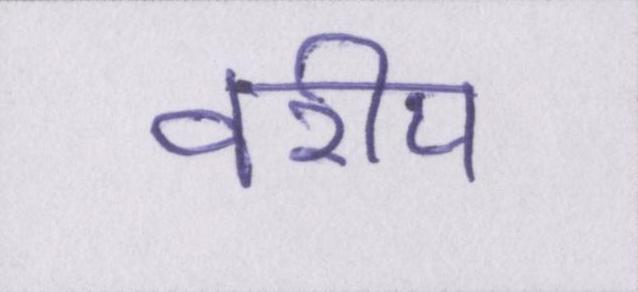 वरीय